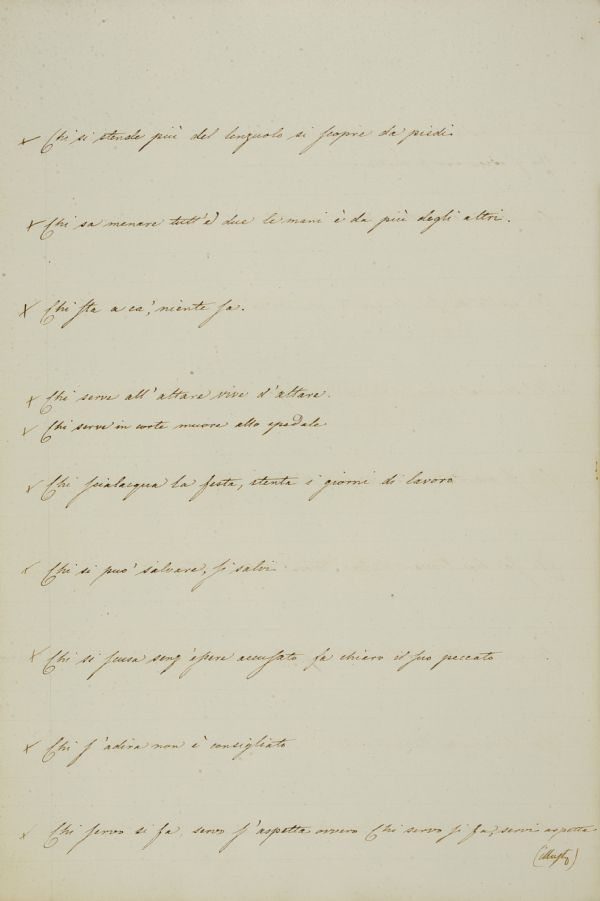 x Chi si stende più del lenzuolo si scopre da piedi
x Chi sa menare tutt'e due le mani è da più degli altri.
x Chi sta a ca', niente sa.
x Chi serve all'altare vive d'altare.
x Chi serve in corte muore allo spedale
x Chi scialacqua la festa, stenta i giorni di lavoro
x Chi si può salvare, si salvi
x Chi si scusa senz'essere accusato fa chiaro il suo peccato
x Chi s'adira non è consigliato
x Chi servo si fa, servo s'aspetta ovvero Chi servo si fa, servi aspetta